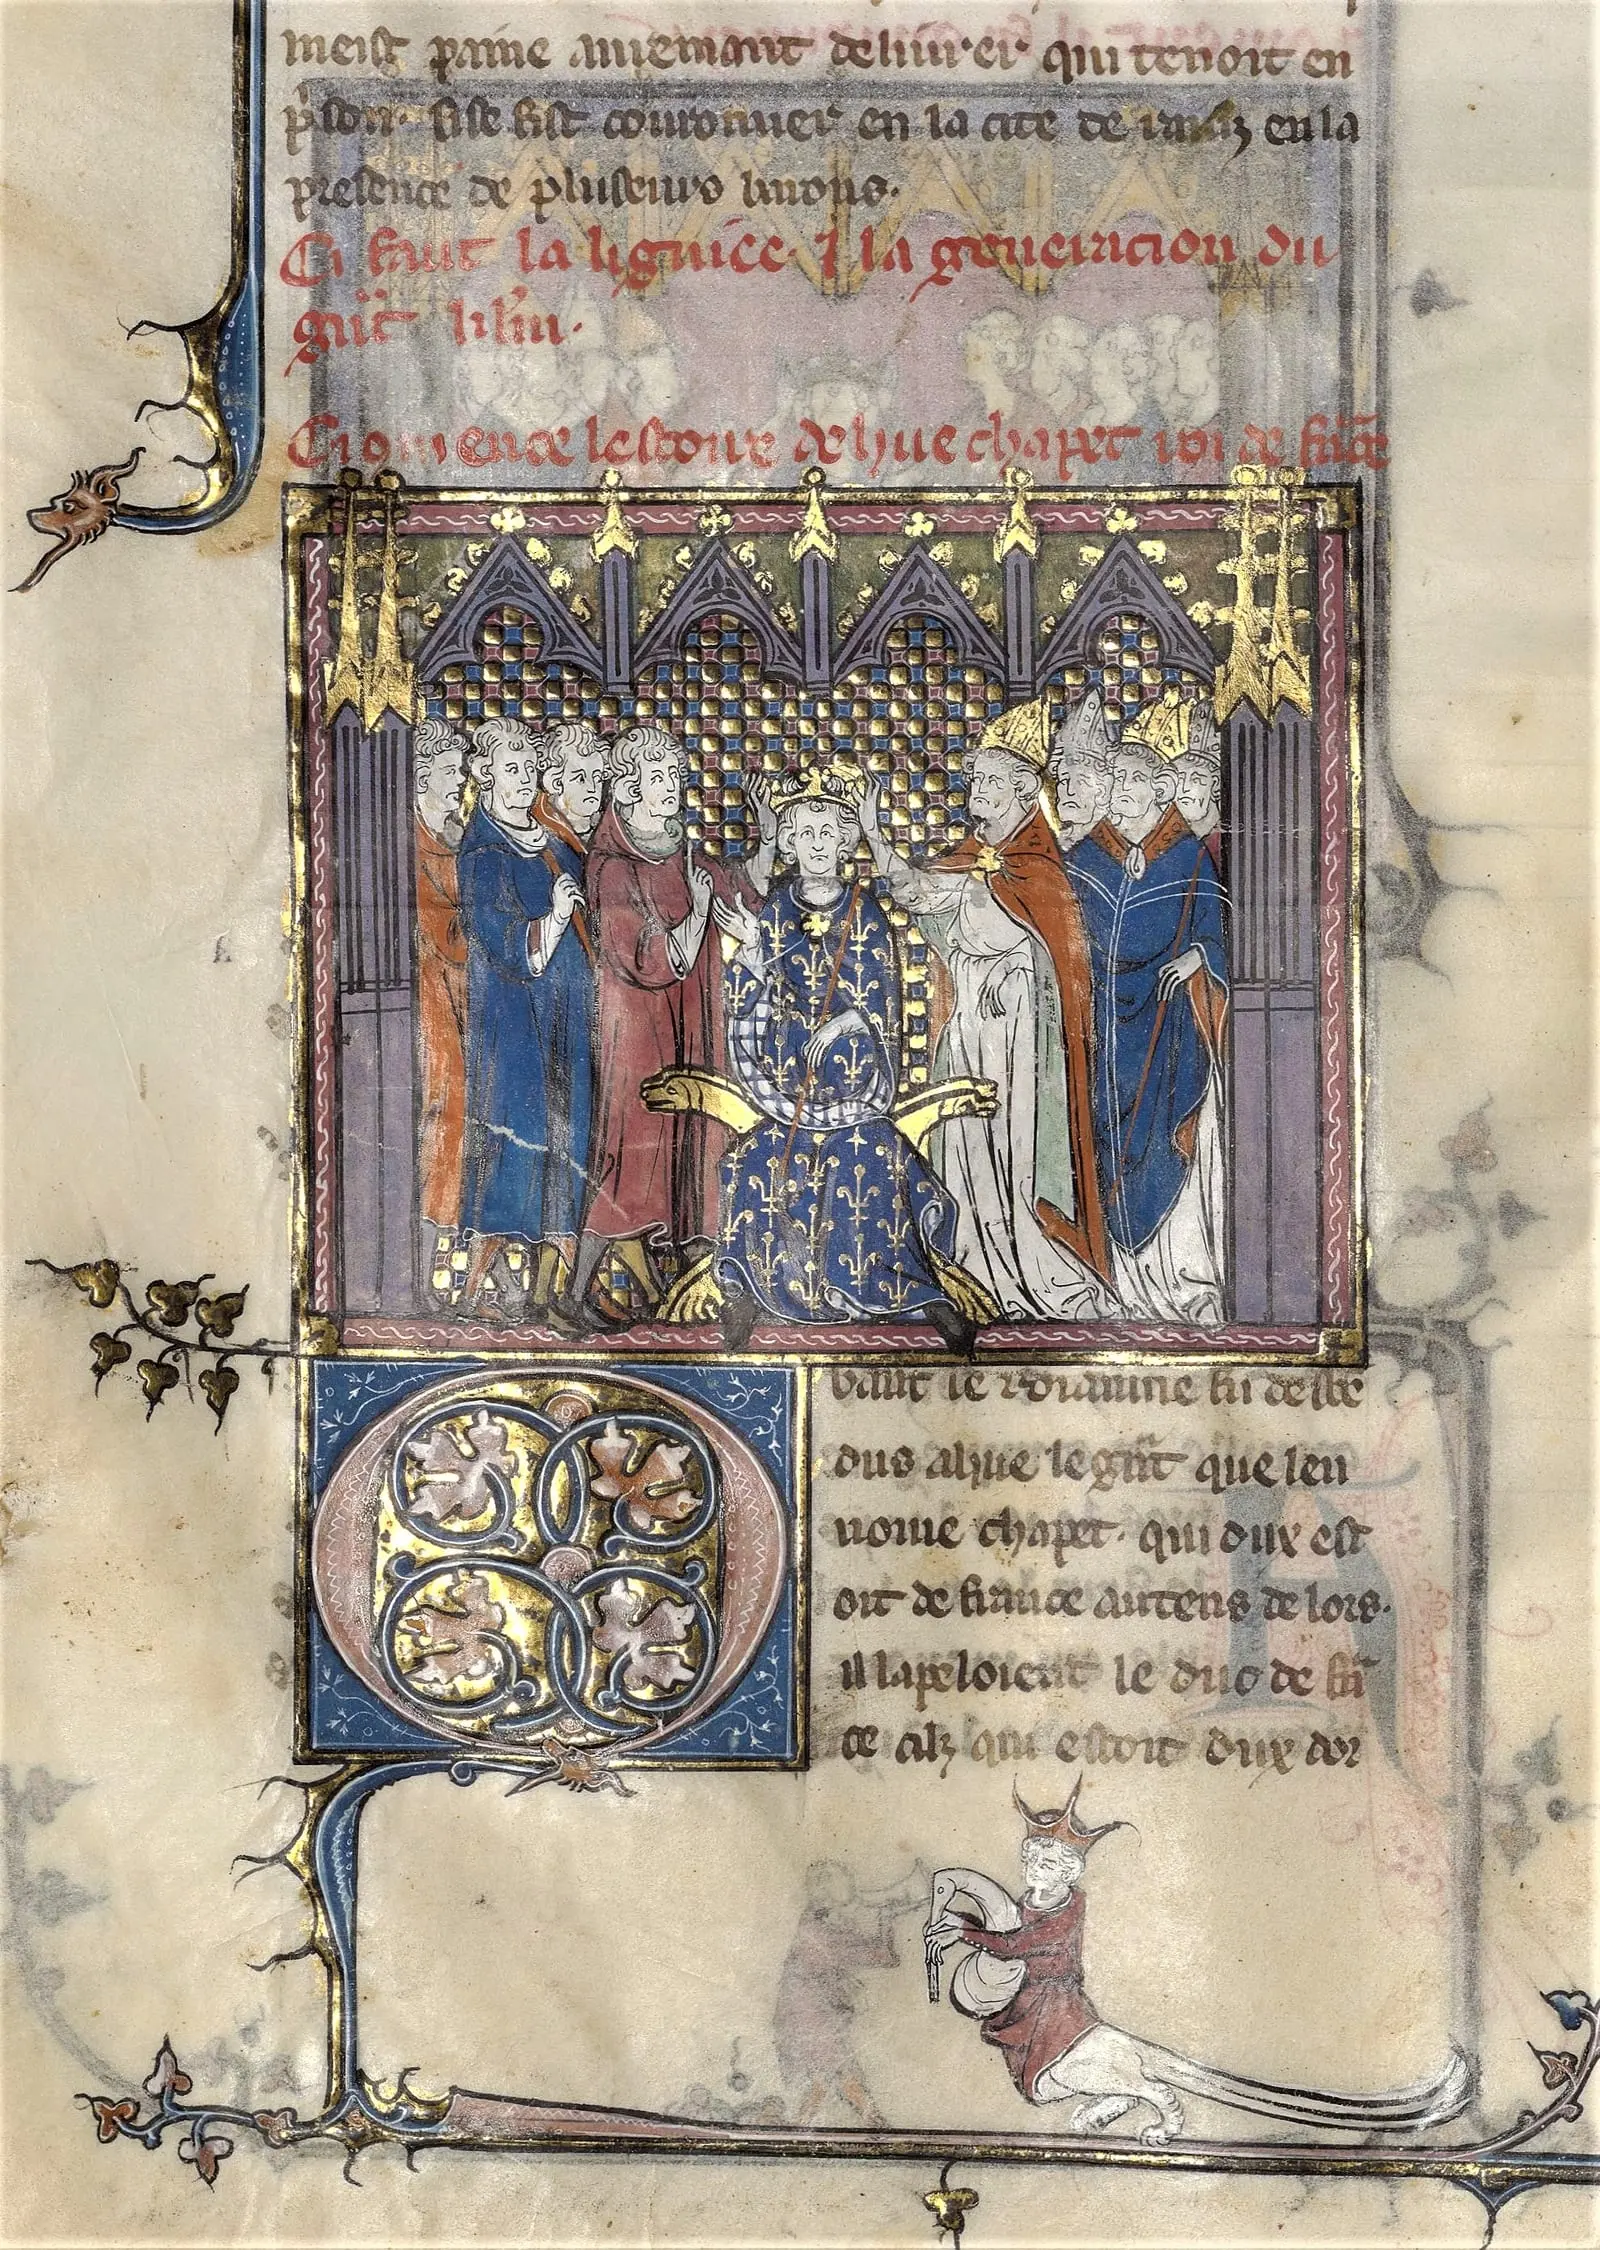 meist paine auiemant deliurer qui tenoit en
p̾son. si se fist couronner en la cite de rainz en la
presence de pluseurs barons.
Ci faut la ligniee. ⁊ la generacion du
grāt
Ci comence lestoire de hue chapet roi de frāce
uant le roiaume fu descẽ
dus a hue le grāt que len
nome chapet. qui dux est
oit de france au tens de lors.
il lapeloient le duc de frā
ce cilz qui estoit dux dor